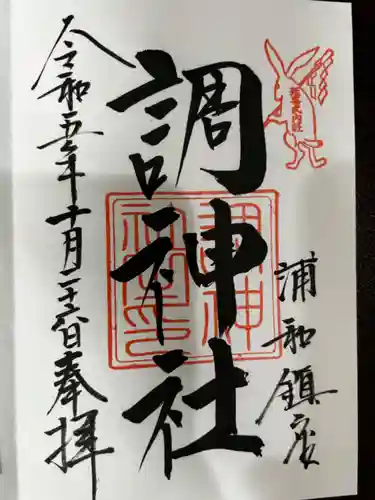 浦和鎮座
調神社
調神社印
令和五年十月二十六日奉拝